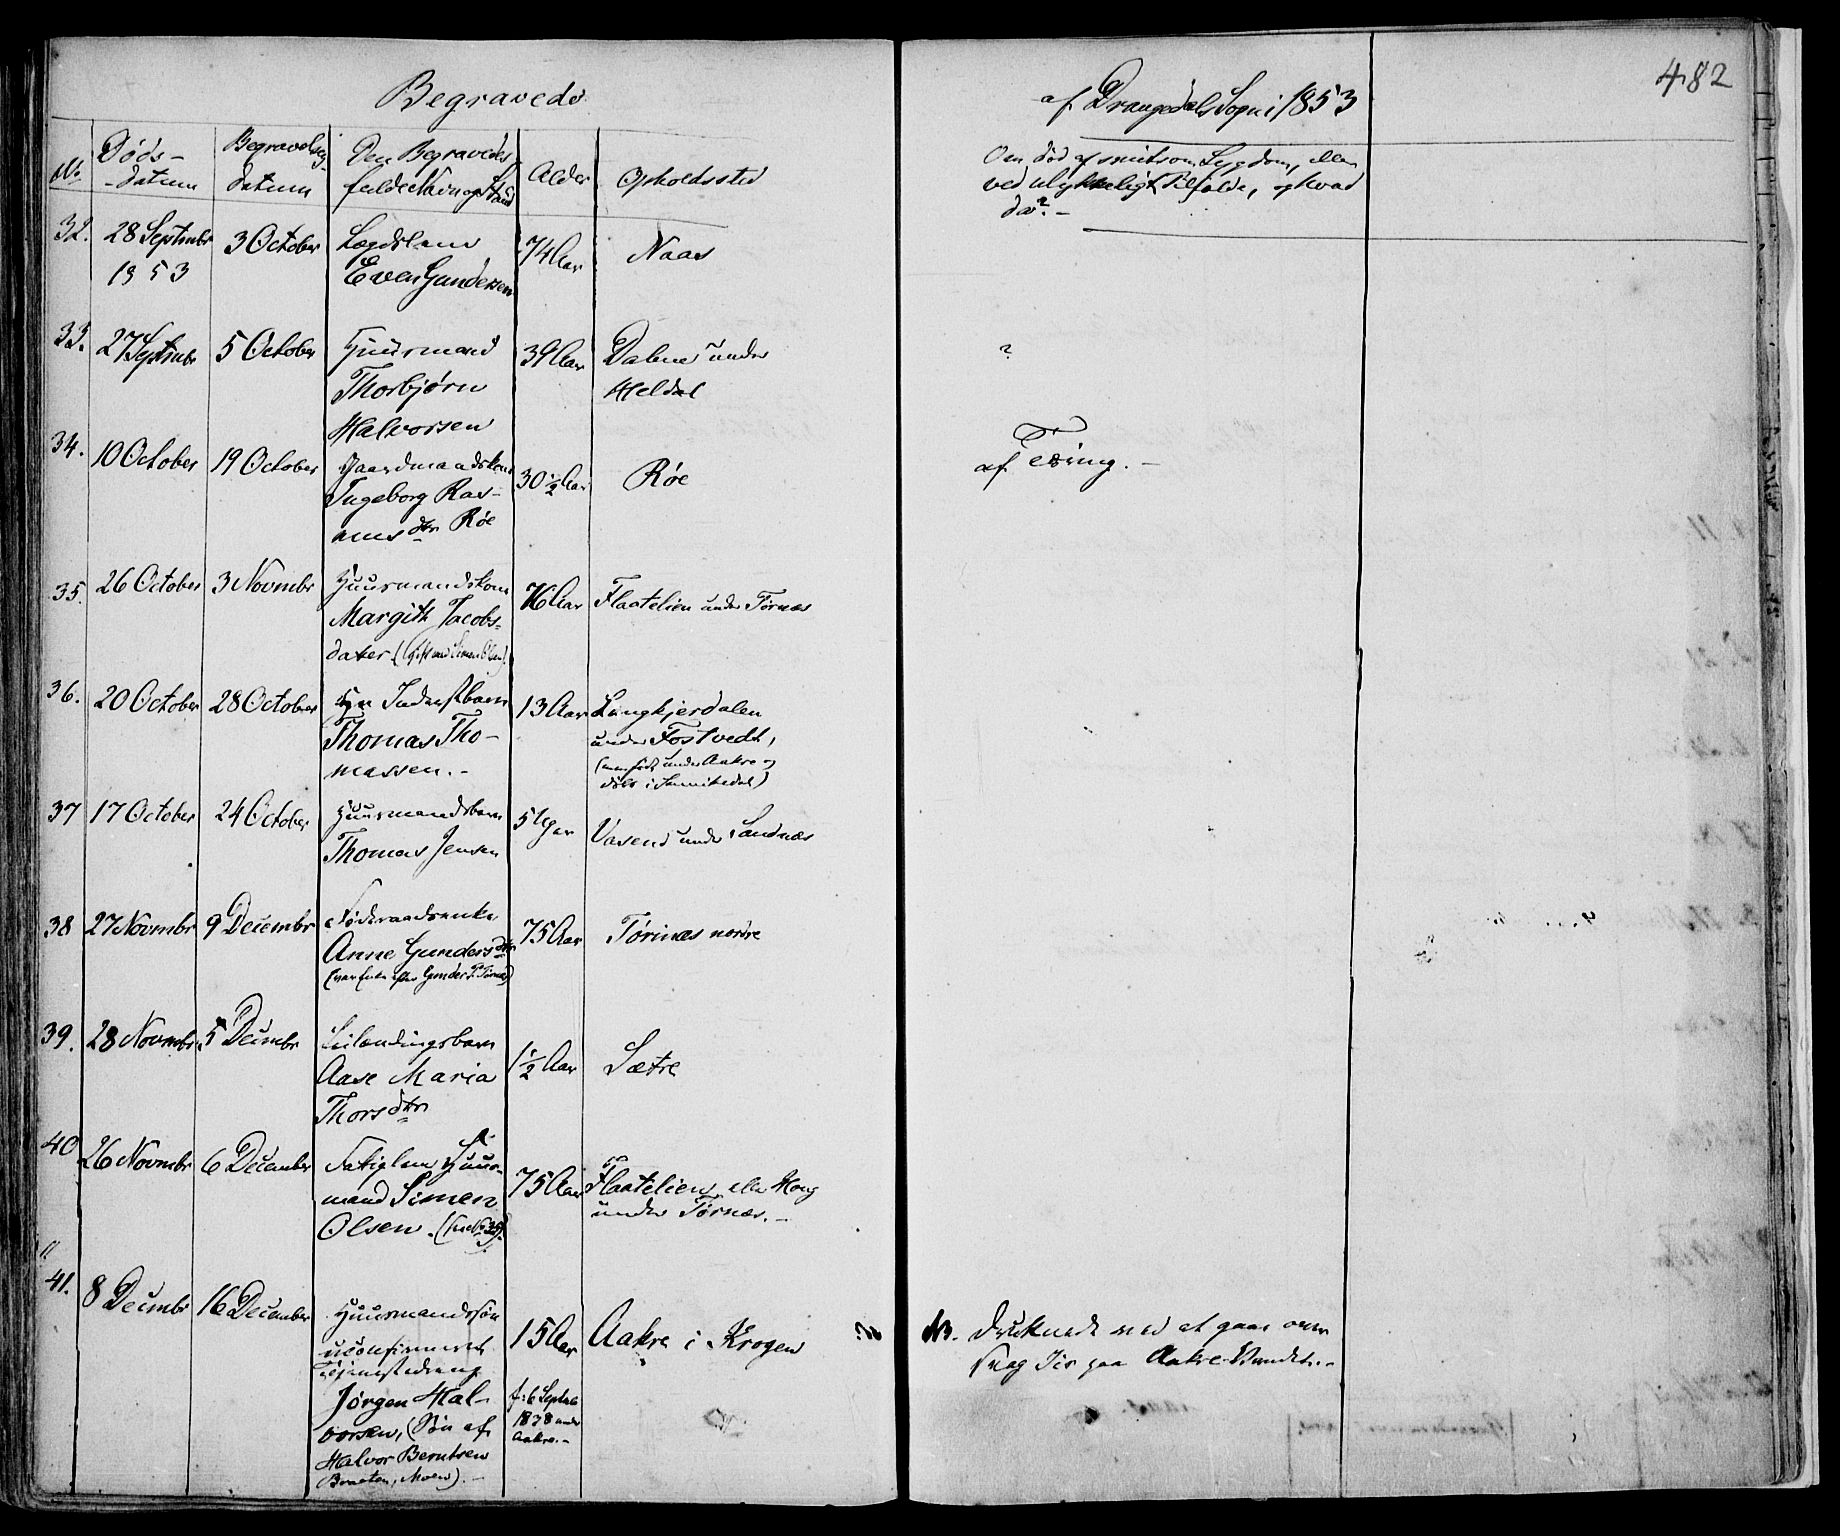 482
Begravede af Drangedals Sogn i 1853
No
Døds-datum
Begravelsesdatum
Den Begravedes fulde Navn og Stand
Alder
Opholdssted
Om død af smitsom Sygdom, eller
ved ulykkeligt Tilfælde, og hvad
da? -
32. 28 Septembr 1853
3 October
Lægdslem
Even Gundersen
74 Aar
Naas
33. 27 Septembr
5 October
Huusmand
Thorbjørn
Halvorsen
39 Aar
Dalene under
Heldal
?
34. 10 October
19 October
Gaardmandskone
Ingeborg Ras-
musdtr Røe
30 ½ Aar
Røe
af Tæring. -
35. 26 October
3 Novmbr
Huusmandskone
Margith Jacobs-
dater. (Gift med Simen Olsen).
76 Aar
Flaatelien under Tørnæs
36. 20 October
28 October
Inderstbarn
Thomas Tho-
massen. -
13 Aar
Langkjerdalen
under Fostvedt,
(men født under Aakre og
døbt i Sannikedal)
37 17 October
24 October
Huusmandsbarn
Thomas Jensen
5 Uger
Vasend under Sandnæs
38 27 Novmbr
9 Decembr
Føderaadsenke
Anne Gundersdtr
(var Enke efter Gunder P. Tørnæs)
75 Aar
Tørnæs nordre
39. 28 Novmbr
5 Decmbr
Leilændingsbarn
Aase Maria
Thorsdtr
1 ½ Aar
Sætre
40 26 Novmbr
6 December
Fatiglem Huus-
mand Simen
Olsen. (see No 35).
75 Aar
Flaatelien, eller Haug
under Tørnæs. -
41. 8 Decmbr
16 December
Huusmandssøn
uconfirmeret
Tjenestedreng
Jørgen Hal-
vorsen, (Søn af
Halvor Berntsen
Braaten, Moen). -
15 Aar
f: 6 Septbr
1838 under
Aakre. -
Aakre i Krogen
Druknede ved at gaae over
svag Iis paa Aakre-Vandet. -